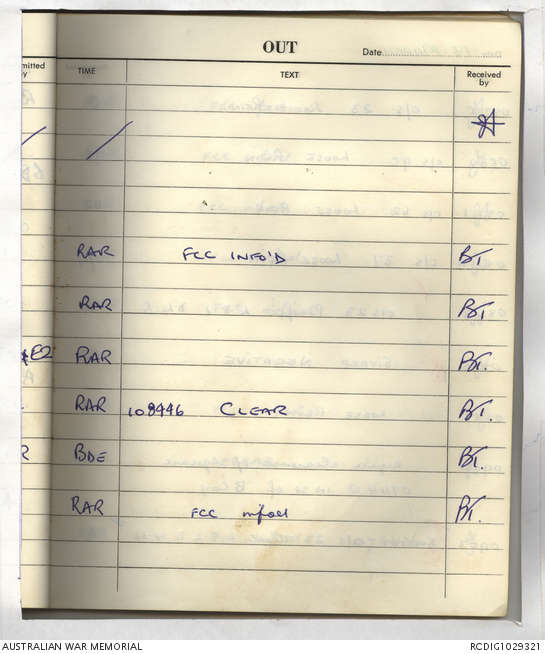 OUT
Date
mitted
by
TIME
TEXT
Received
by
RAR FCC INFO'D BT.
RAR BT.
E2 RAR BT.
RAR 108446 CLEAR BT.
R BDE BT.
RAR FCC infoed BT.
AUSTRALIAN WAR MEMORIAL
RCDIG1029321